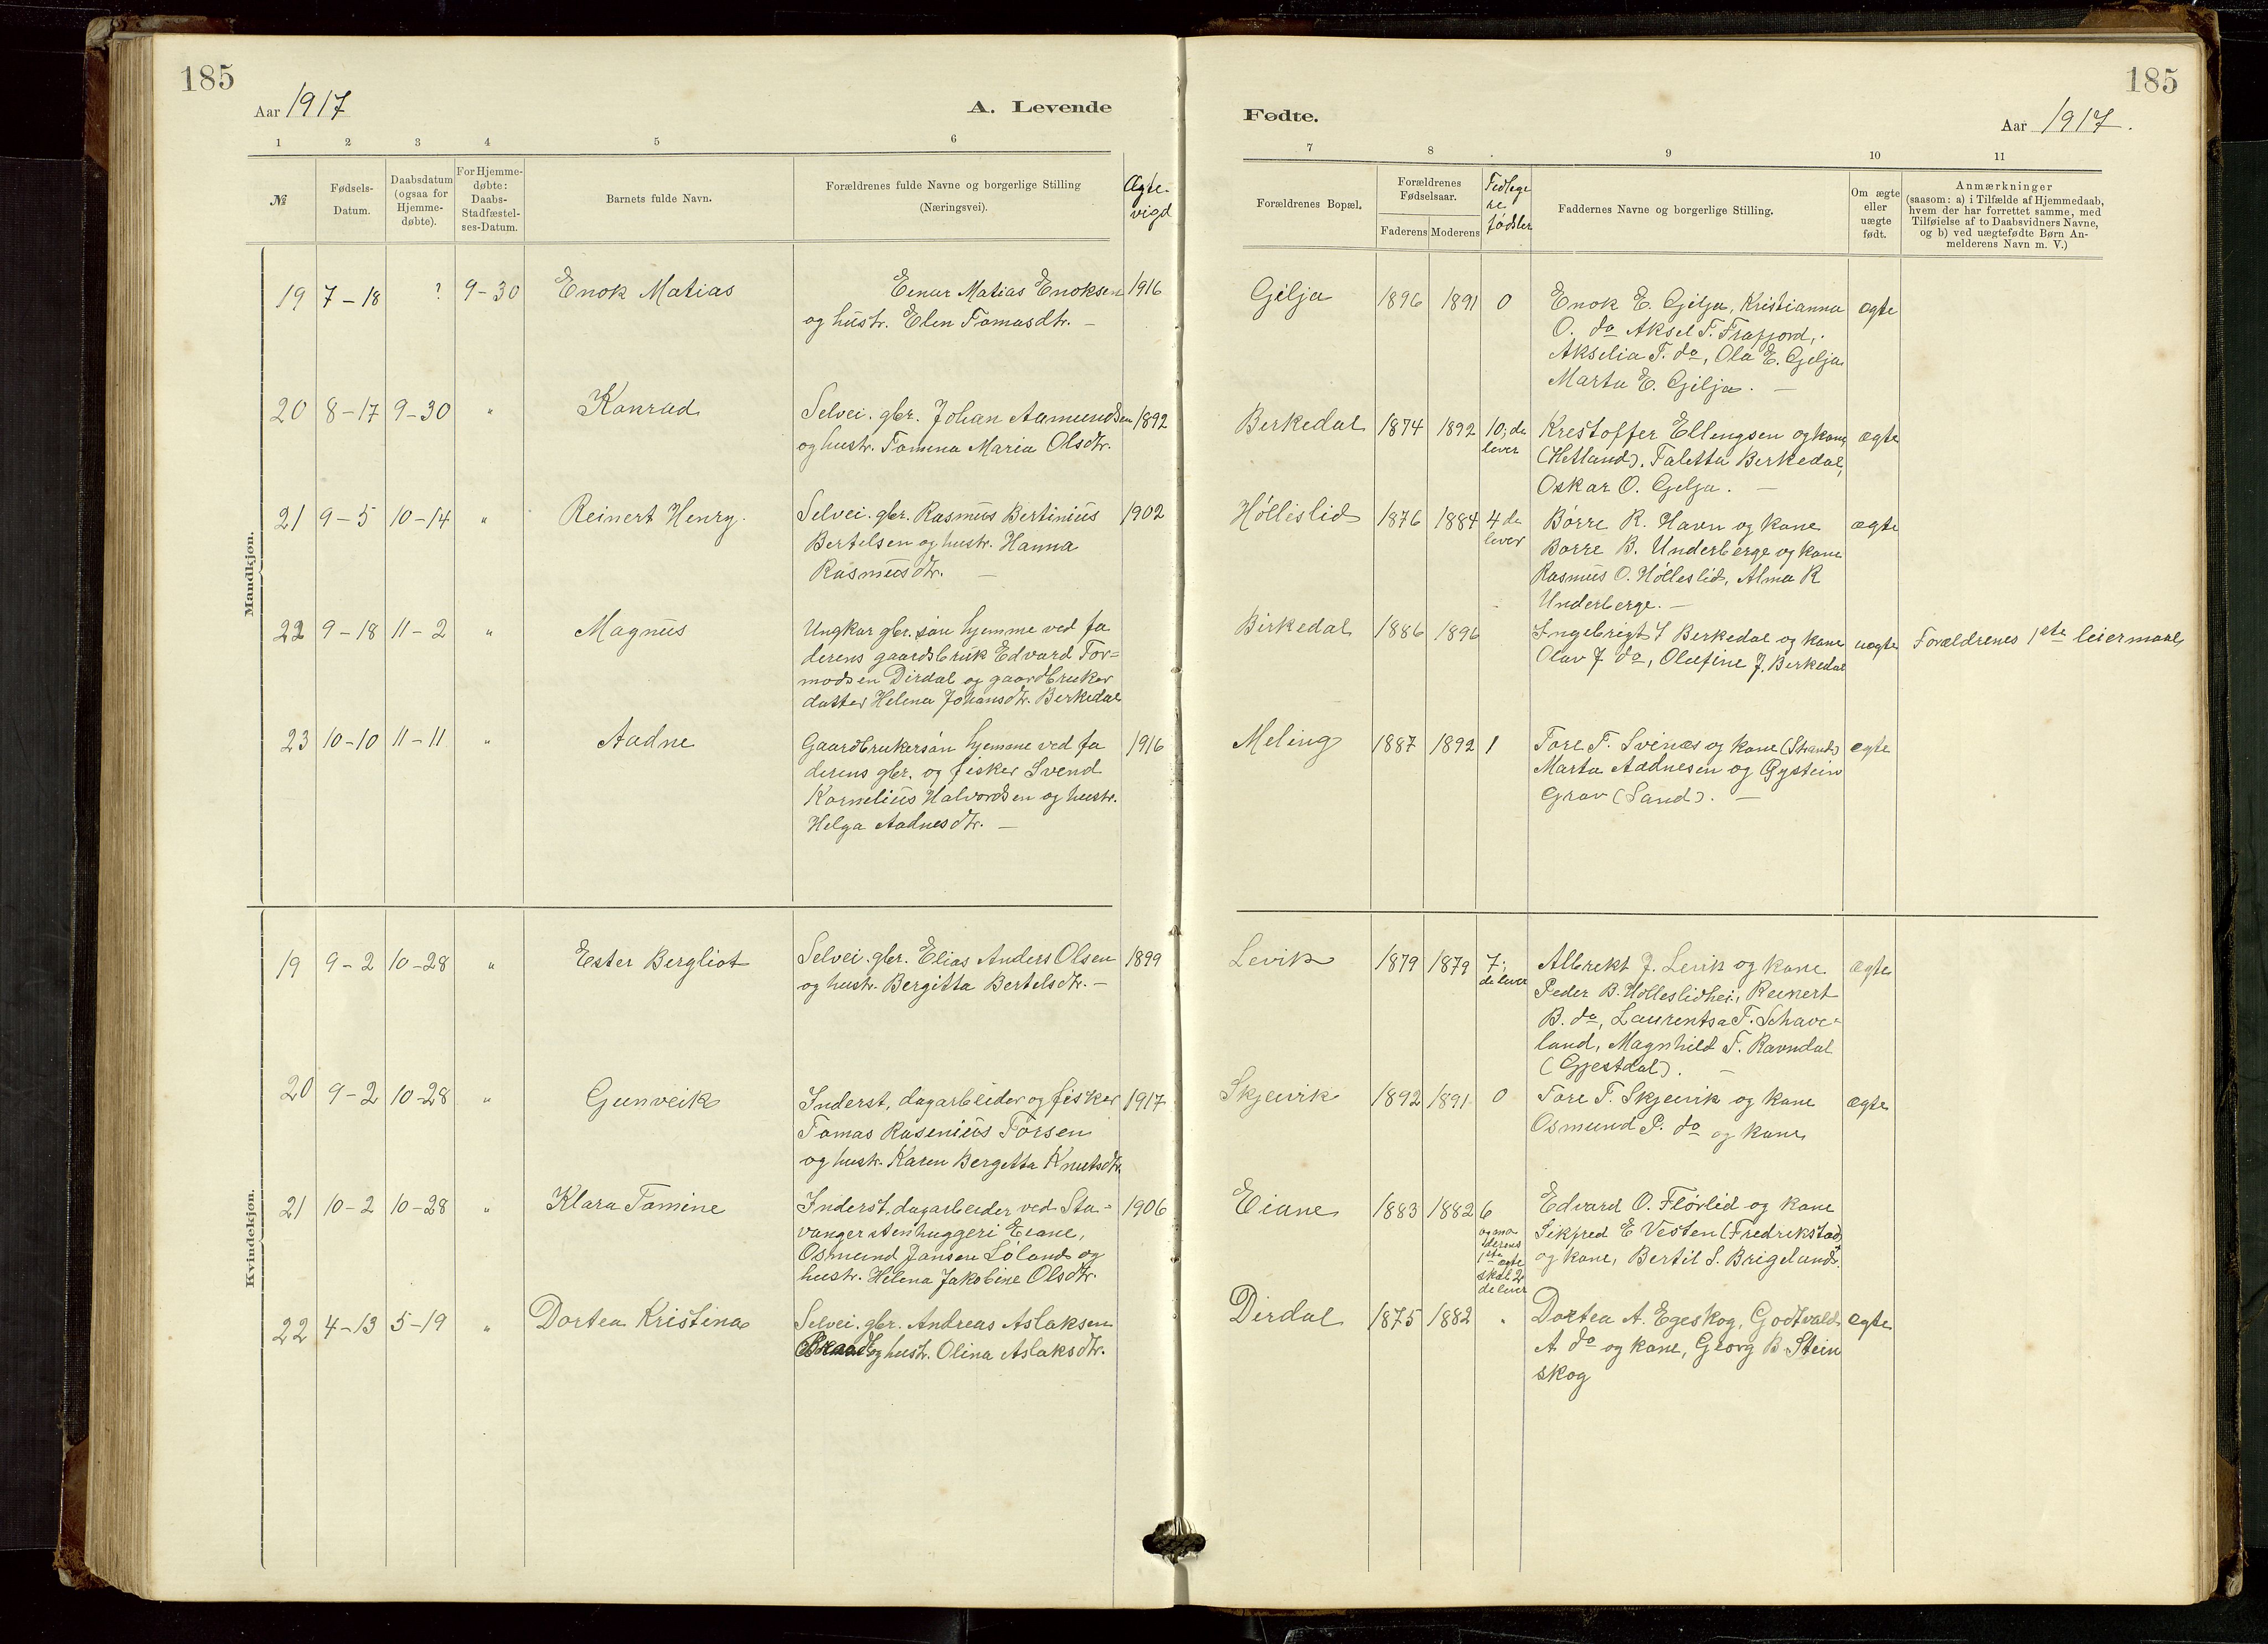 185
185
Aar 1917
A. Levende
Fødte.
Aar 1917.
1 2 3 4 5 6
7 8 9 10 11
№
Fødsels-
Datum.
Daabsdatum
(ogsaa for
Hjemme-
døbte).
For Hjemme-
døbte:
Daabs-
Stadfæstel-
ses-Datum.
Barnets fulde Navn.
Forældrenes fulde Navne og borgerlige Stilling
(Næringsvei).
Ægte-
vigd
Forældrenes Bopæl.
Forældrenes
Fødselsaar.
Faderens Moderens
Tidlege
re
fødsler
Faddernes Navne og borgerlige Stilling.
Om ægte
eller
uægte
født.
Anmærkninger
(saasom: a) i Tilfælde af Hjemmedaab,
hvem der har forrettet samme, med
Tilføielse af to Daabsvidners Navne,
og b) ved uægtefødte Børn An-
melderens Navn m. V.)
Mandkjøn.
19 7-18 ? 9-30 Enok Matias
Einar Matias Enoksen 1916
og hustr. Elen Tomasdtr. —
Gilja 1896 1891 0
Enok E. Gilja, Kristianna
O. do Aksel T. Frafjord,
Akselia T. do, Ola E. Gilja
Marta E. Gilja. —
ægte
20 8-17 9-30 " Konrad
Selvei. gbr. Johan Aamundsen 1892
og hustr. Tomina Maria Olsdtr.
Berkedal 1874 1892 10; de
lever
Kristoffer Ellingsen og kone
(Hetland). Taletta Berkedal,
Oskar O. Gilja. —
ægte
21 9-5 10-14 " Reinert Henry.
Selvei. gbr. Rasmus Bertinius 1902
Bertelsen og hustr. Hanna
Rasmusdtr. —
Høllislid 1876 1884 4 de
lever
Børre R. Havn og kone
Borre B. Underberge og kone
Rasmus O. Hølleslid, Alma R
Underberge. —
ægte
22 9-18 11-2 " Magnus
Ungkar gbr. søn hjemme ved fa
derens gaardsbruk Edvard Tor=
modsen Dirdal og gaardbruker
datter Helena Johansdtr. Berkedal
Birkedal 1886 1896
Ingebrigt J Berkedal og kone
Olav J do, Olufine J. Berkedal
uægte
Forældrenes 1ste leiermaal
23 10-10 11-11 " Aadne
Gaardbrukersøn hjemme ved fa 1916
derens gbr. og fisker Svend
Kornelius Halvordsen og hustr.
Helga Aadnesdtr. —
Meling 1887 1892 1
Tore T. Svinæs og kone (Strand)
Marta Aadnesen og Øystein
Grav (Sand). —
ægte
Kvindekjøn.
19 9-2 10-28 " Ester Bergliot
Selvei. gbr. Elias Anders Olsen 1899
og hustr. Bergitta Bertelsdtr. —
Levik 1879 1879 7;
de lever
Albrekt J. Levik og kone
Peder B. Hølleslidhei, Reinert
B. do, Laurentsa T. Schave-
land, Magnhild T. Ravndal
(Gjestdal). —
ægte
20 9-2 10-28 " Gunveik
Inderst, dagarbeider og fisker 1917
Tomas Rasenius Torsen
og hustr. Karen Bergetta Knutsdtr
Skjeivik 1892 1891 0
Tore T. Skjeivik og kone
Osmund P. do og kone
ægte
21 10-2 10-28 " Klara Tomine
Inderst, dagarbeider ved Sta- 1906
vanger stenhuggeri Eiane,
Osmund Jansen Løland og
hustr. Helena Jakobine Olsdtr.
Eiane 1883 1882 6
og mo
derens
1ste ægte
skal 2
de lever
Edvard O. Flørlid og kone
Sikfred E Vesten (Fredrikstad)
og kone, Bertil S. Brigeland.
22 4-13 5-19 " Dortea Kristina
Selvei. gbr. Andreas Aslaksen
og hustr. Olina Aslaksdtr.
Dirdal 1875 1882 "
Dortea A. Egeskog, Godtvald
A do og kone, Georg B Stein
skog
ægte